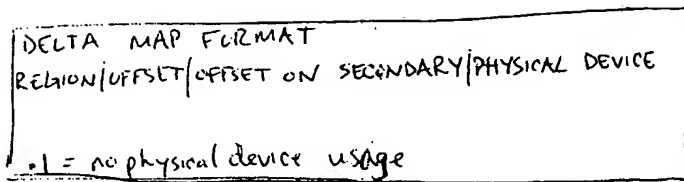 DELTA MAP FORMAT
REGION/OFFSET/OFFSET ON SECONDARY/PHYSICAL DEVICE
-1 = no physical device usage